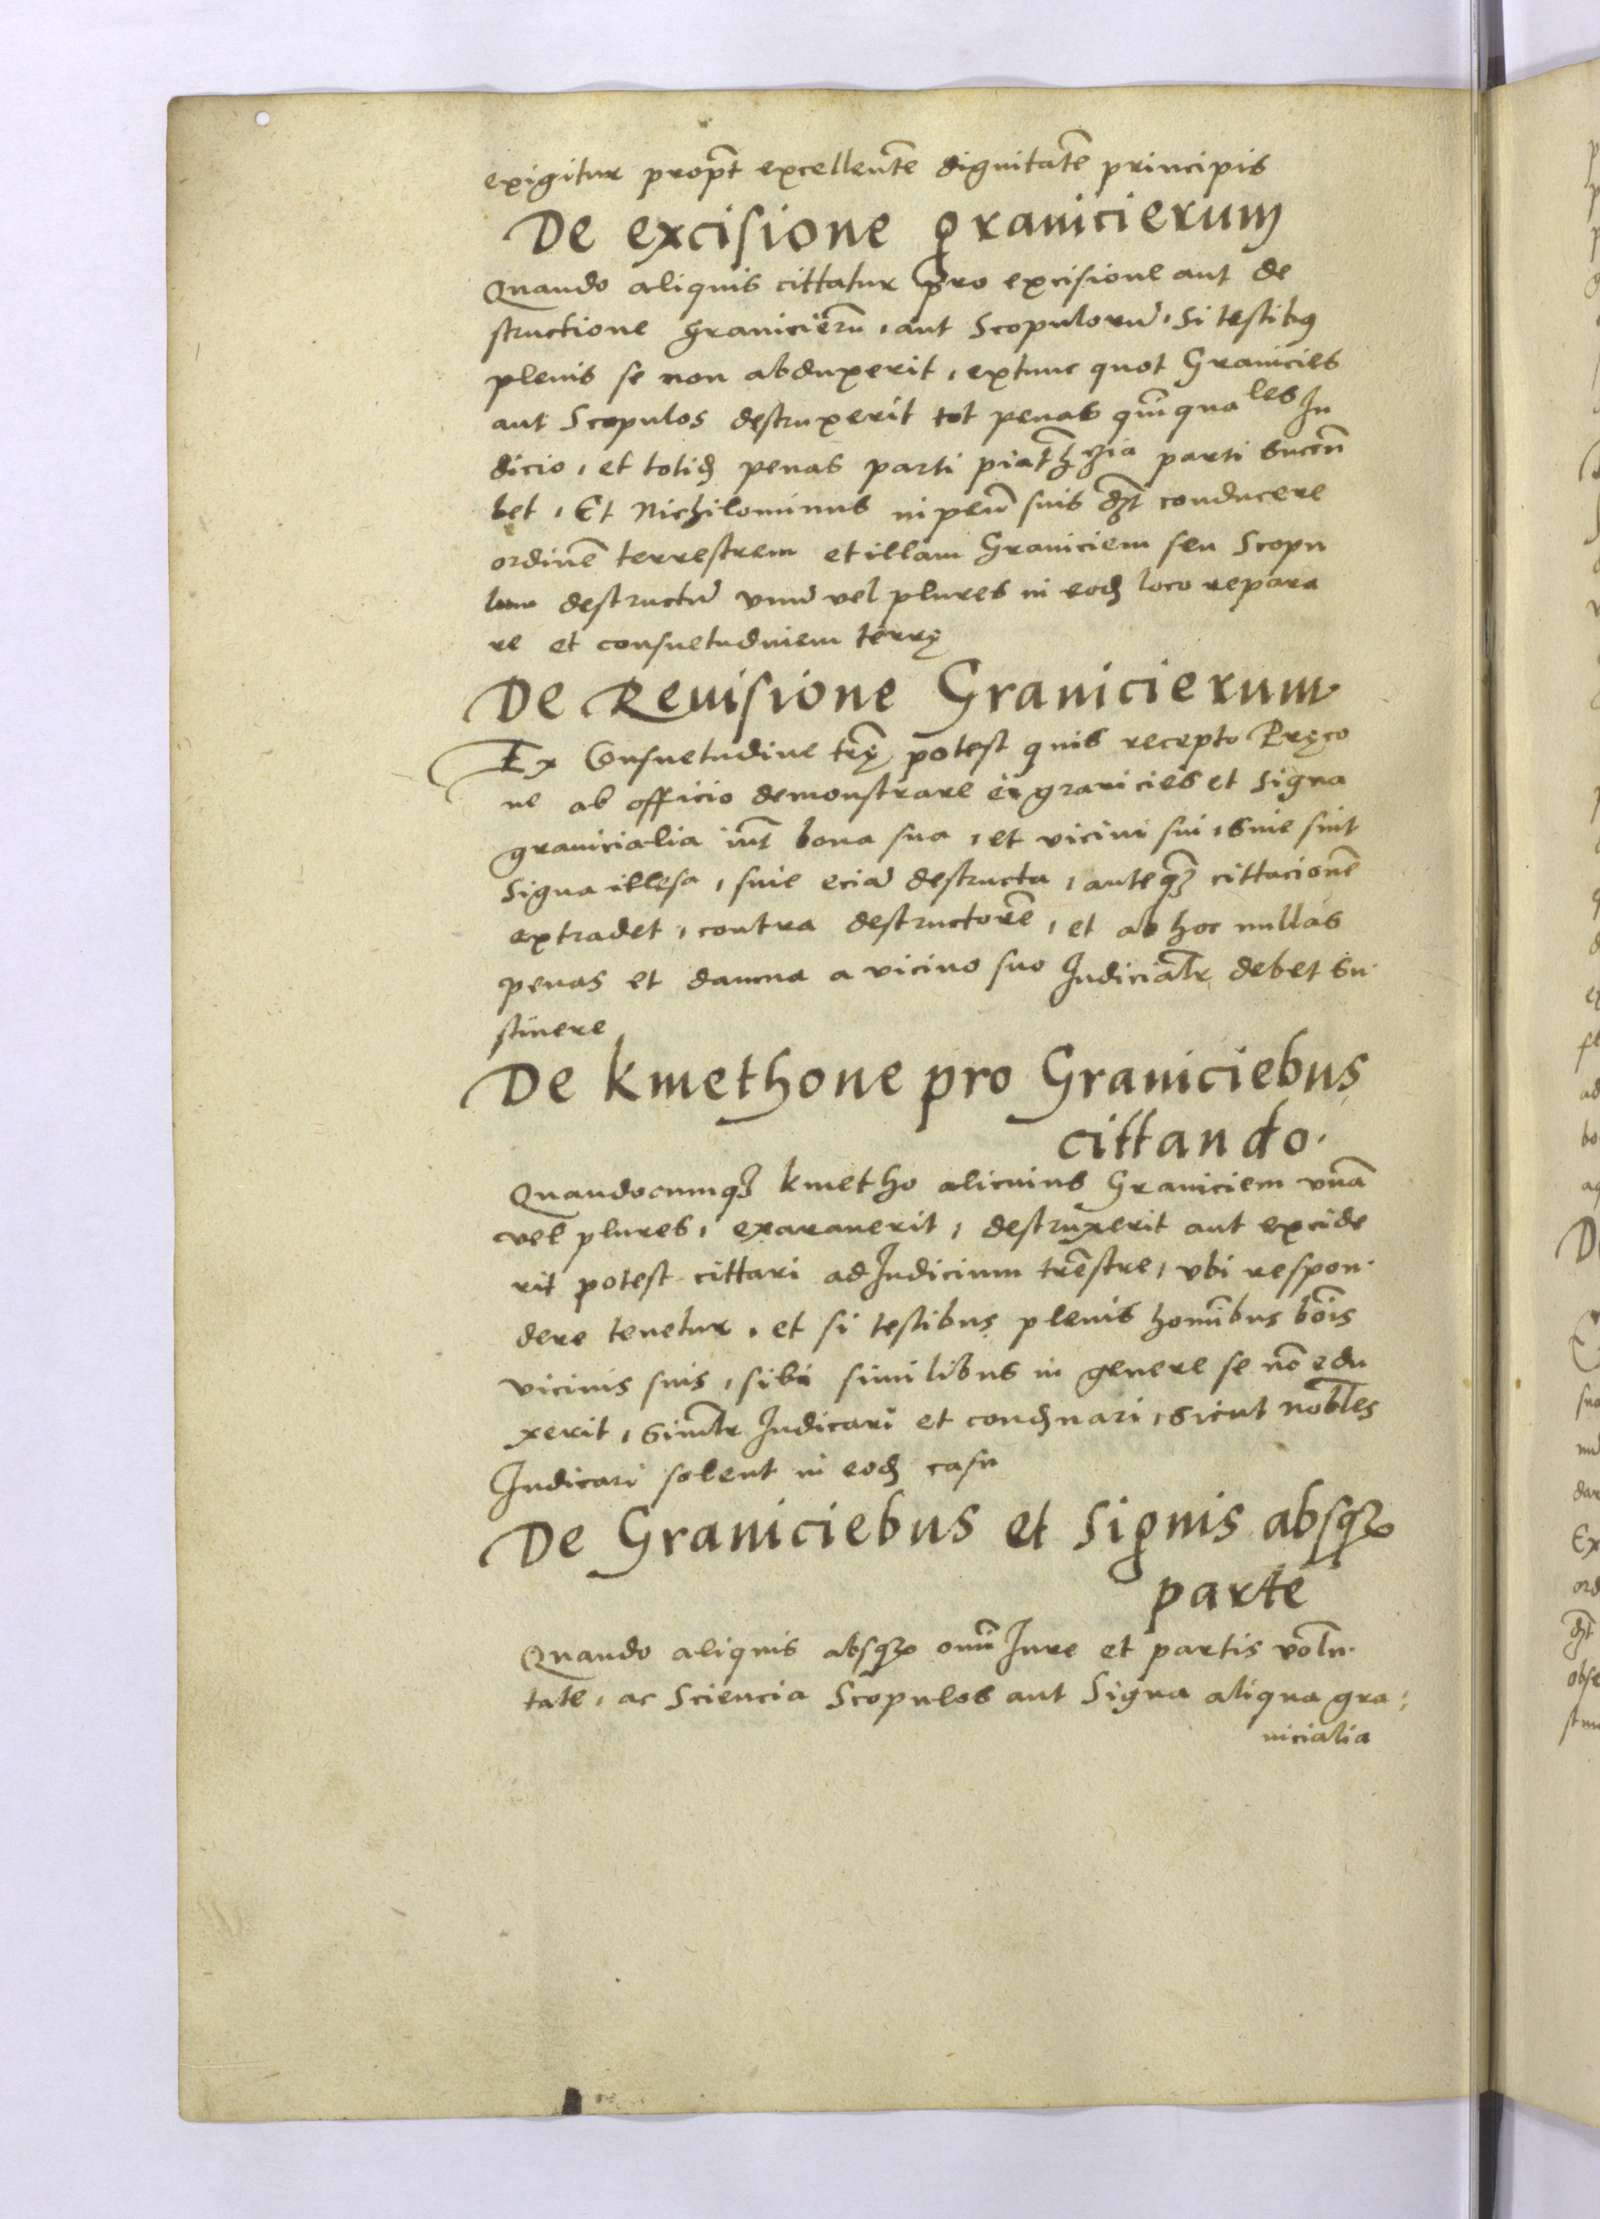 exigitur prop̄t excellen̄te dignitat̄e principis
De excisione granicierum
Quando aliquis cittatur pro excisione aut de
structione granicierū, aut Scopulorū, Si testibus
plenis se non abduxerit, extunc quot Granicies
aut Scopulos destruxerit tot penas quīquales Ju
dicio, et totidē penas parti parti succū
bet, Et Nichilominus suis conducere
ordinē terrestrem et illam Graniciem seu Scopu
lum destructū vnū vel plures in eodē loco repara
re et consuetudinem terrę
De Reuisione Granicierum
Ex Consuetudine trę̄ potest quis recepto Pręco
ne ab officio demonstrare ei granicies et Signa
granicialia iux̄t bona sua, et vicini sui, siue sint
Signa illęsa, siue eciā destructa, anteq̄ȝ cittacionē
extradet, contra destructorē, et ab hoc nullas
penas et damna a vicino suo Judicialr̄ debet su
stinere
De kmethone pro Graniciebus
cittando.
Quandocumqȝ kmetho alicuius Graniciem vnā
vel plures, exarauerit, destruxerit aut excide
rit potest cittari ad Judicium tr̄estre, vbi respon
dere tenetur, et si testibus plenis homībus bōis
vicinis suis, sibi similibus in genere se nō edu
xerit, Simlr̄ Judicari et condēnari, sicut nobles̄
Judicari solent in eodē casu
De Graniciebus et Signis absqȝ
parte
Quando aliquis absqȝ omī Jure et partis volū
tate, ac Sciencia Scopulos aut Signa aliqua gra:
nicialia